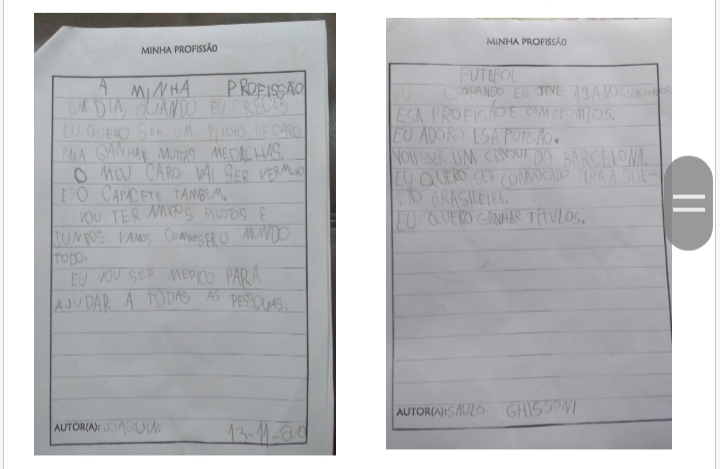 MINHA PROFISSÃO
A MINHA PROFISSÃO
UM DIA, QUANDO EU CRECER,
EU QUERO SER UM PILOTO DE CARO
PARA GANHAR MUITAS MEDALHAS.
O MEU CARO VAI SER VERMLIO
E O CAPACETE TAMBEM.
VOU TER AMIGOS PILOTOS E
JUNTOS VAMOS O MUNDO
TODO.
EU VOU SER MEDICO PARA
AJUDAR A TODAS AS PESSOUAS.
AUTOR(A): JOAQUIM
13-11-
MINHA PROFISSÃO
FUTEBOL
QUANDO EU TIVE 19 ANOS
ESA PROFISÃO E COM PONTOS.
EU ADORO ESA
VOU SER UM CRAQUE DO BARCELONA.
EU QUERO SER CONVOCADO PARA A SELE-
ÇÃO BRASILEIRA.
EU QUERO GANHAR TÍTULOS.
AUTOR(A): SAULO GHISSONI